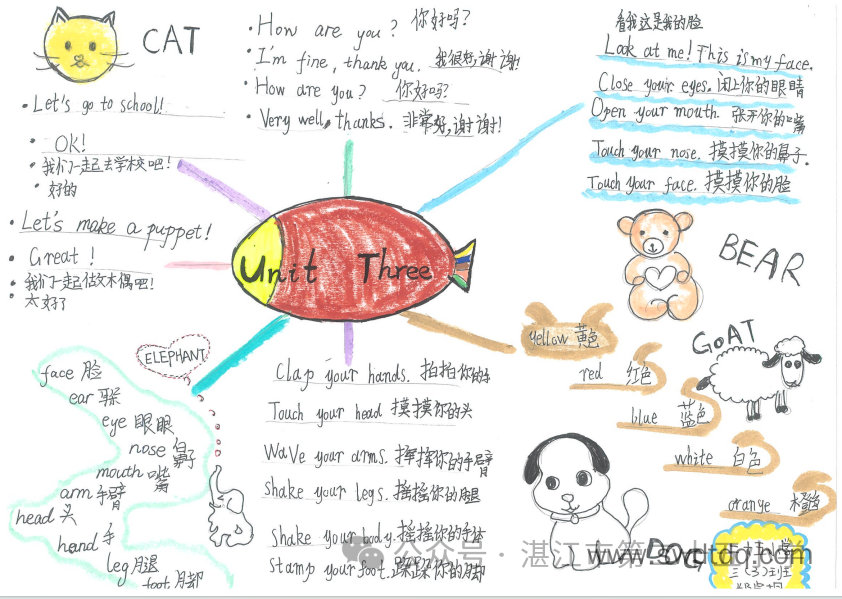 CAT
Let's go to school!
OK!
我们一起去学校吧!
好的
Let's make a puppet!
Great!
我们一起做木偶吧!
太好了
How are you? 你好吗?
I'm fine, thank you. 我很好,谢谢!
How are you? 你好吗?
Very well, thanks. 非常好,谢谢!
看我这是我的脸
Look at me! This is my face.
Close your eyes. 闭上你的眼睛
Open your mouth. 张开你的嘴
Touch your nose. 摸摸你的鼻子.
Touch your face. 摸摸你的脸
Unit Three
BEAR
GOAT
yellow 黄色
red 红色
blue 蓝色
white 白色
oranye 橙色
ELEPHANT
face 脸
ear 耳朵
eye 眼眼
nose 鼻子
mouth 嘴
arm 手臂
head 头
hand 手
leg 腿
foot 脚
Clap your hands. 拍拍你的手
Touch your head 摸摸你的头
Wave your arms. 挥挥你的手臂
Shake your legs. 摇摇你的腿
Shake your body. 摇摇你的身体
Stamp your foot. 跺跺你的脚
DOG
公众号 · 湛江市第
三(3)班